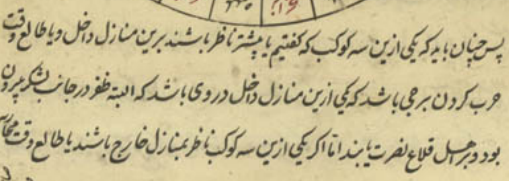 پس چنان باید که یکی ازین سه کوکب که کفتیم یا پیشتر ناظر باشند برین منازل داخل و یا طالع وقت
حرب کردن برجی باشد که یکی ازین منازل داخل در وی باشد که البته ظفر در جانب لشکر بیرون
بود و بر اهل قلاع نصرت یابند اما اکر یکی ازین سه کوکب ناظر بمنازل خارج باشند یا طالع وقت